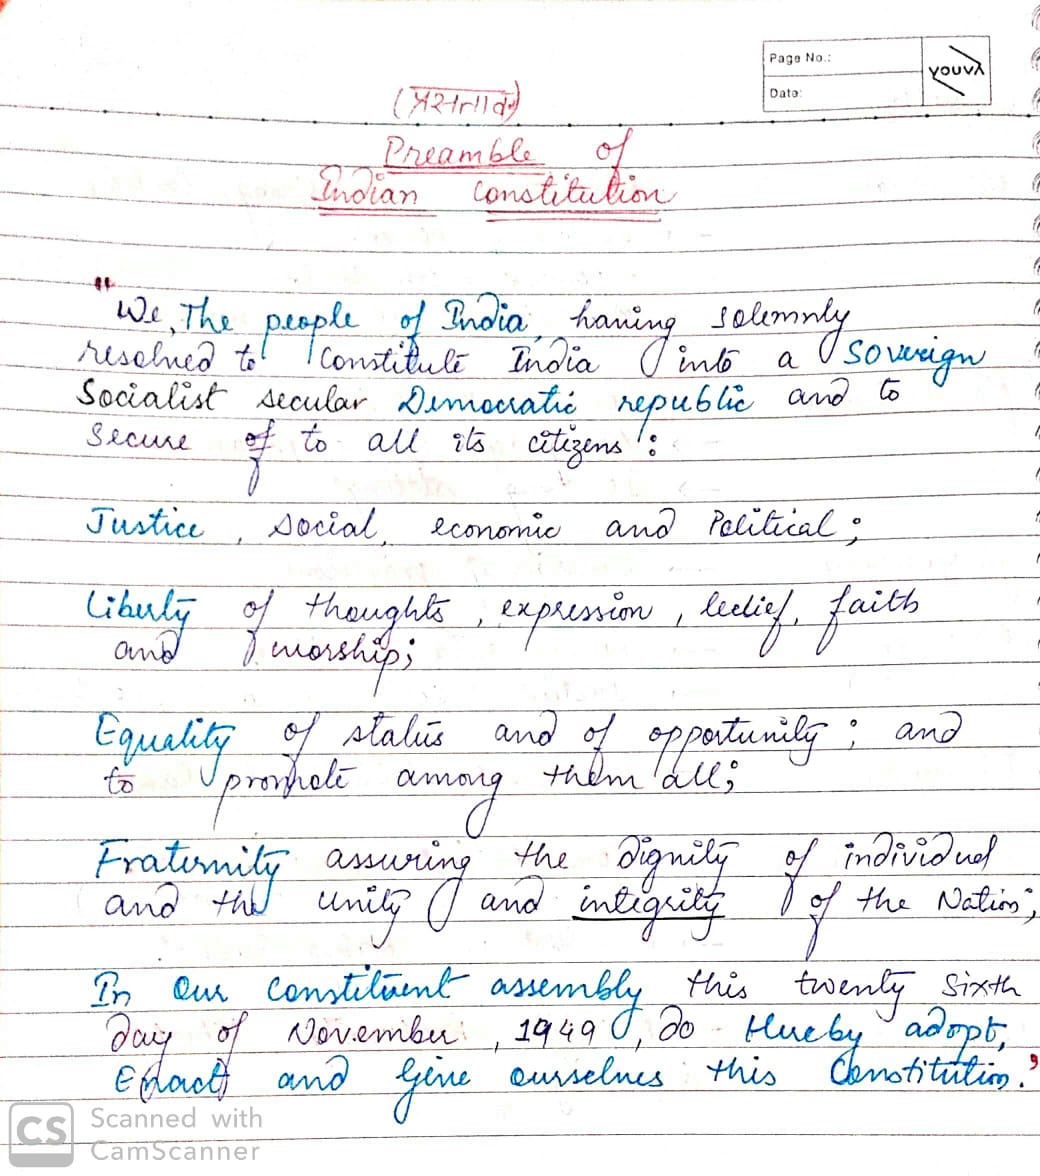 Page No.:
Date:
YOUVA
(प्रस्तावना)
Preamble of
Indian Constitution
"We, The people of India, having solemnly
resolved to constitute India into a Sovereign
Socialist secular Democratic republic and to
Secure of to all its citizens :
Justice, social, economic and Political ;
Liberty of thoughts, expression, belief, faith
and worship;
Equality of status and of opportunity ; and
to promote among them all;
Fraternity assuring the dignity of individual
and the unity and integrity of the Nation;
In our constituent assembly this twenty sixth
day of November, 1949, do Hereby adopt,
Enact and Give ourselves this Constitution."
CS
Scanned with
CamScanner